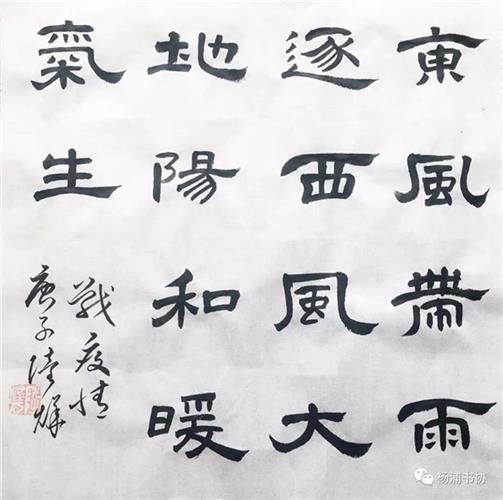 東風帶雨
逐西風大
地陽和暖
氣生
戰疫情
庚子陸
杨浦书协